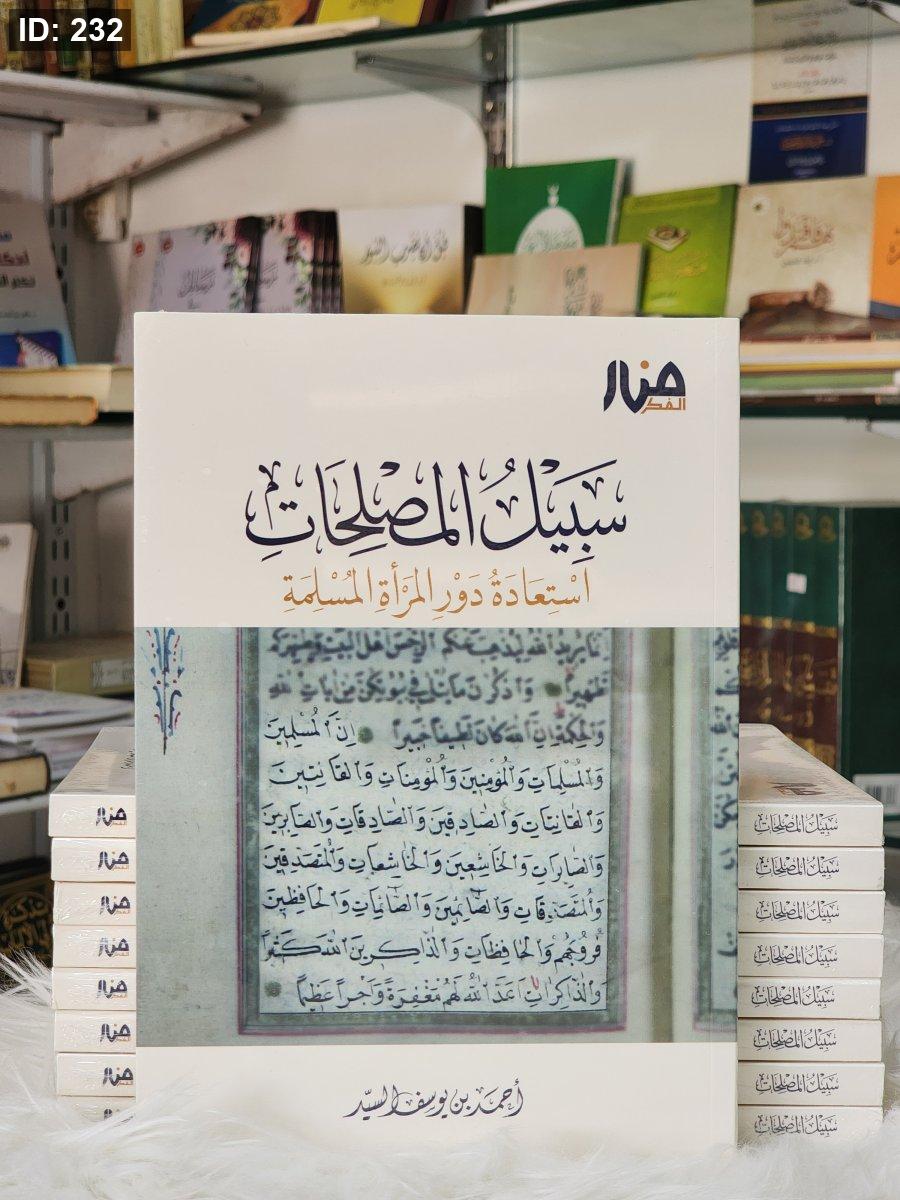 ID: 232
منار
الفكر
سَبِيلُ المُصْلِحَاتِ
اسْتِعَادَةُ دَوْرِ المَرْأَةِ المُسْلِمَةِ
يُرِيدُ اللَّهُ لِيُذْهِبَ عَنْكُمُ الرِّجْسَ أَهْلَ الْبَيْتِ وَيُطَهِّرَكُمْ
تَطْهِيرًا وَاذْكُرْنَ مَا يُتْلَى فِي بُيُوتِكُنَّ مِنْ آيَاتِ اللَّهِ
وَالْحِكْمَةِ إِنَّ اللَّهَ كَانَ لَطِيفًا خَبِيرًا إِنَّ الْمُسْلِمِينَ
وَالْمُسْلِمَاتِ وَالْمُؤْمِنِينَ وَالْمُؤْمِنَاتِ وَالْقَانِتِينَ
وَالْقَانِتَاتِ وَالصَّادِقِينَ وَالصَّادِقَاتِ وَالصَّابِرِينَ
وَالصَّابِرَاتِ وَالْخَاشِعِينَ وَالْخَاشِعَاتِ وَالْمُتَصَدِّقِينَ
وَالْمُتَصَدِّقَاتِ وَالصَّائِمِينَ وَالصَّائِمَاتِ وَالْحَافِظِينَ
فُرُوجَهُمْ وَالْحَافِظَاتِ وَالذَّاكِرِينَ اللَّهَ كَثِيرًا
وَالذَّاكِرَاتِ أَعَدَّ اللَّهُ لَهُمْ مَغْفِرَةً وَأَجْرًا عَظِيمًا
أحمد بن يوسف السيّد
سبيل المصلحات
سبيل المصلحات
سبيل المصلحات
سبيل المصلحات
سبيل المصلحات
سبيل المصلحات
سبيل المصلحات
سبيل المصلحات